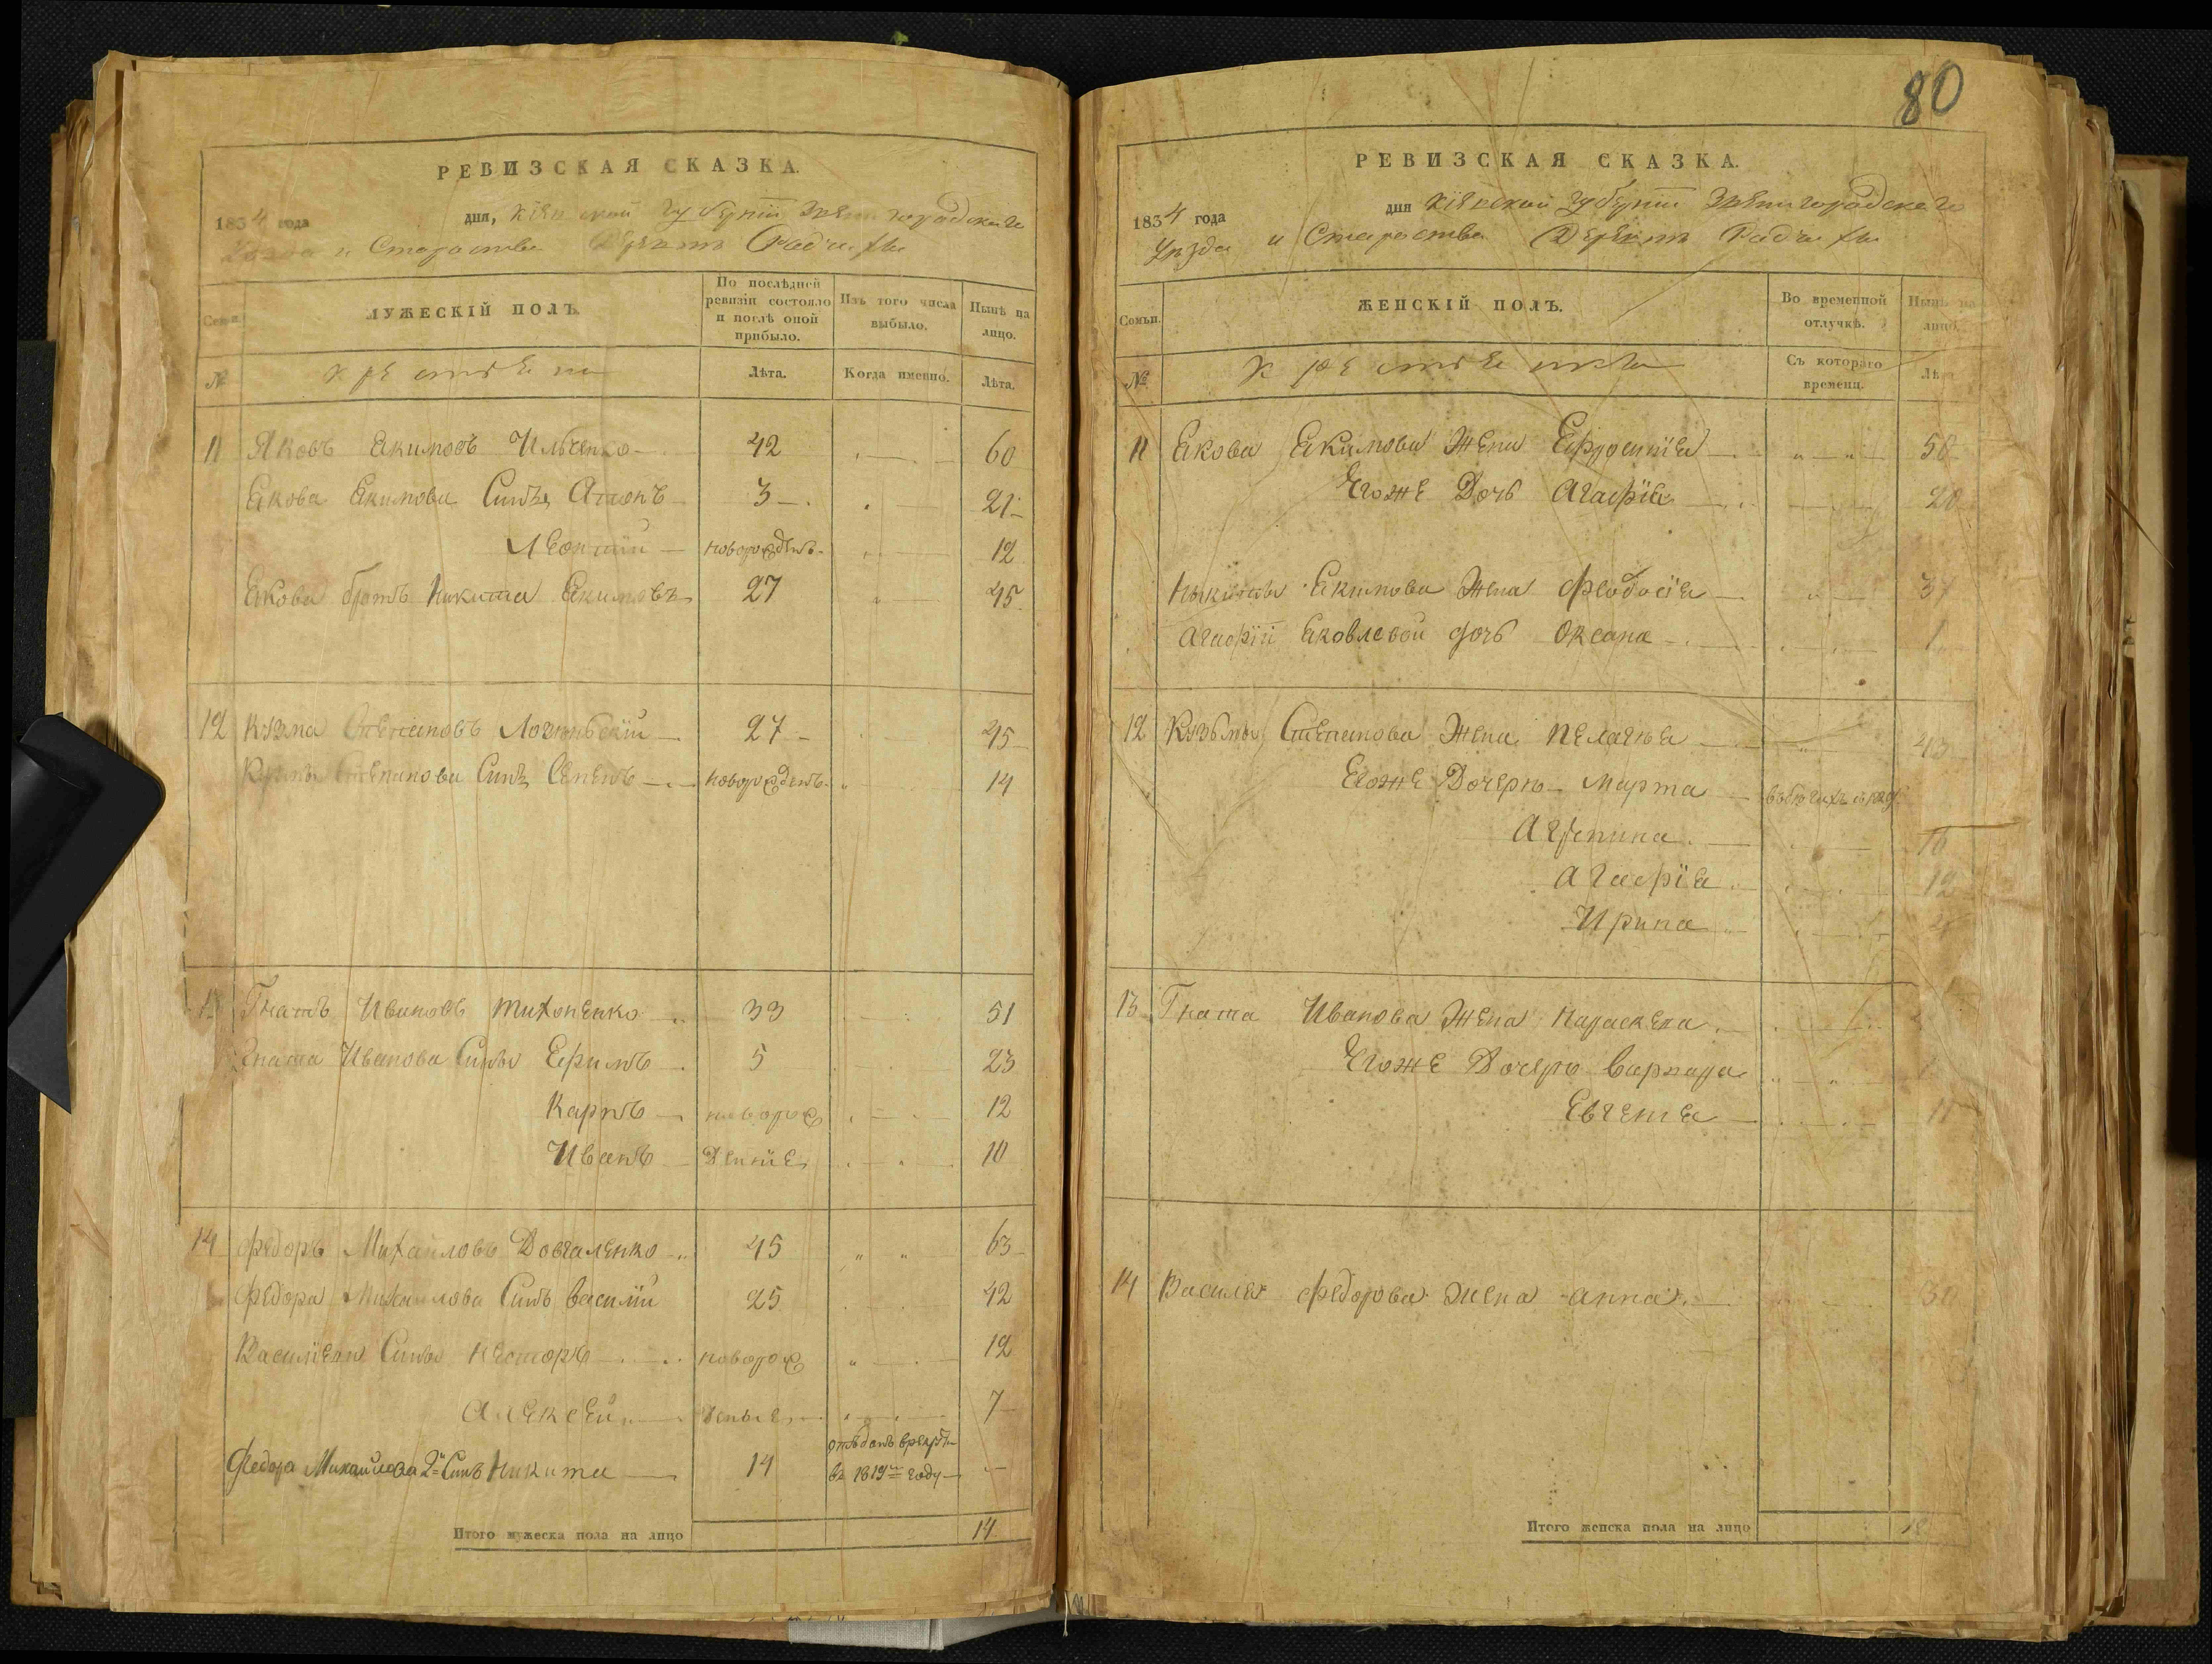 80
РЕВИЗСКАЯ СКАЗКА.
1834 года дня, Кіевской губерніи Звенигородскаго
уезда и Староства Деревни
МУЖЕСКІЙ ПОЛЪ.
По послѣдней ревизіи состояло и послѣ оной прибыло.
Изъ того числа выбыло.
Нынѣ на лицо.
Семьи.
№
крестьяне
Лѣта.
Когда именно.
Лѣта.
11 Яковъ Екимовъ Ильченко 42 60
Екова Екимова Синъ Антонъ 3 21
Леонтій новорожденъ 12
Екова братъ Никита Екимовъ 27 45
12 Кузма Степановъ 27 45
Кузмы Степанова Синъ Семенъ новорожденъ 14
13 Гнатъ Ивановъ Тихоненко 33 51
Гната Иванова Сины Ефимъ 5 23
Карпъ новорож 12
Иванъ денніе 10
14 Федоръ Михайловъ Довгаленко 45 63
Федора Михайлова Синъ Василій 25 42
Василіевы Сины Несторъ новорож 12
Алексей 7
Федора Михайлова 2й Синъ Никита 14 отъданъ врекрутъ въ 1819м году
Итого мужеска пола на лицо 14
РЕВИЗСКАЯ СКАЗКА.
1834 года дня Кіевской губерніи Звенигородскаго
уезда и Староства Деревни
Семьи.
ЖЕНСКІЙ ПОЛЪ.
Во временной отлучкѣ.
Нынѣ на лицо.
№
крестьянки
Съ котораго времени.
Лѣта
11 Екова Екимова Жена Ефросинія 50
Егоже Дочь Агафія 20
Никиты Екимова Жена Феодосія
Агафіи Яковлевой дочь Оксана 1
12 Кузьмы Степанова Жена Пелагея 43
Егоже Дочери Марта
Агрепина 16
Агафія 12
Ирина
13 Гната Иванова Жена Параскева
Егоже Дочери Варвара
Евгенія
14 Василя Федорова жена анна 30
Итого женска пола на лицо